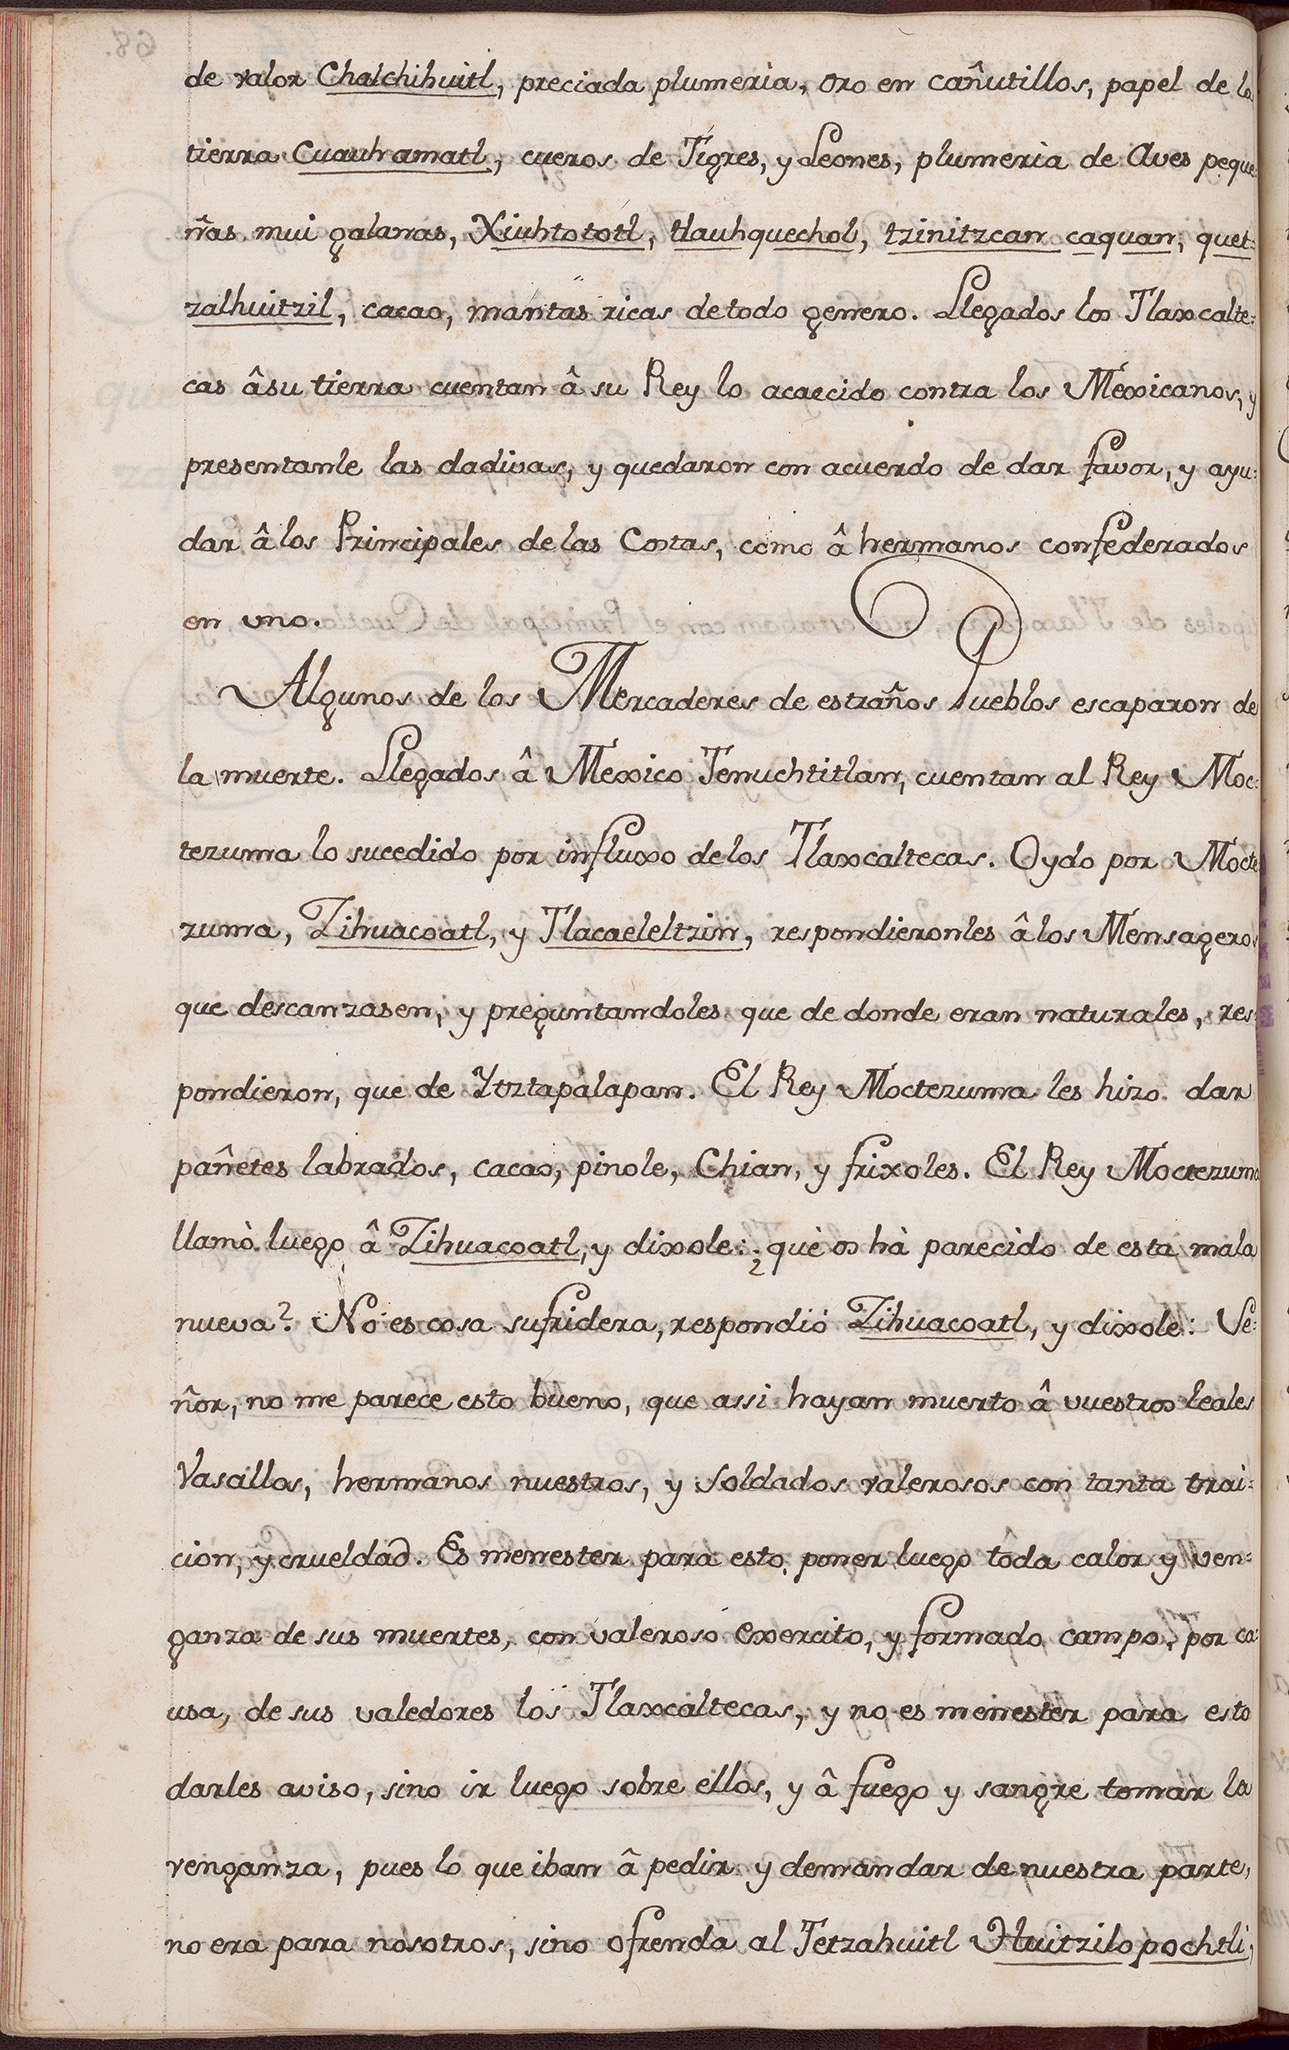 de valor Chalchihuitl, preciada plumeria, oro en cañutillos, papel de la
tierra Cuauhamatl, cueros de Tigres, y Leones, plumeria de Aves peque=
ñas mui galanas, Xiuhtototl, tlauhquechol, tzinitzcan caquan, quet=
zalhuitzil, cacao, mantas ricas de todo genero. Llegados los Tlaxcalte=
cas â su tierra cuentan â su Rey lo acaecido contra los Mexicanos, y
presentanle las dadivas, y quedaron con acuerdo de dar favor, y ayu=
dar â los Principales de las Costas, como â hermanos confederados
en uno.
Algunos de los Mercaderes de estraños Pueblos escaparon de
la muerte. Llegados â Mexico Tenuchtitlan, cuentan al Rey Moc=
tezuma lo sucedido por influxo de los Tlaxcaltecas. Oydo por Mocte
zuma, Zihuacoatl, y Tlacaeleltzin, respondieronles â los Mensageros
que descanzasen, y preguntandoles que de donde eran naturales, res=
pondieron, que de Ytztapalapan. El Rey Moctezuma les hizo dar
pañetes labrados, cacao, pinole, Chian, y frixoles. El Rey Moctezuma
llamò luego â Zihuacoatl, y dixole: ¿què os hà parecido de esta mala
nueva? No es cosa sufridera, respondió Zihuacoatl, y dixole: Se=
ñor, no me parece esto bueno, que assi hayan muerto â vuestros leales
Vasallos, hermanos nuestros, y soldados valerosos con tanta trai=
cion, y crueldad. Es menester para esto, poner luego toda calor y ven=
ganza de sus muertes, con valeroso exercito, y formado campo, por ca
usa, de sus valedores los Tlaxcaltecas, y no es menester para esto
darles aviso, sino ir luego sobre ellos, y â fuego y sangre tomar la
venganza, pues lo que iban â pedir y demandar de nuestra parte,
no era para nosotros, sino ofrenda al Tetzahuitl Huitzilopochtli,